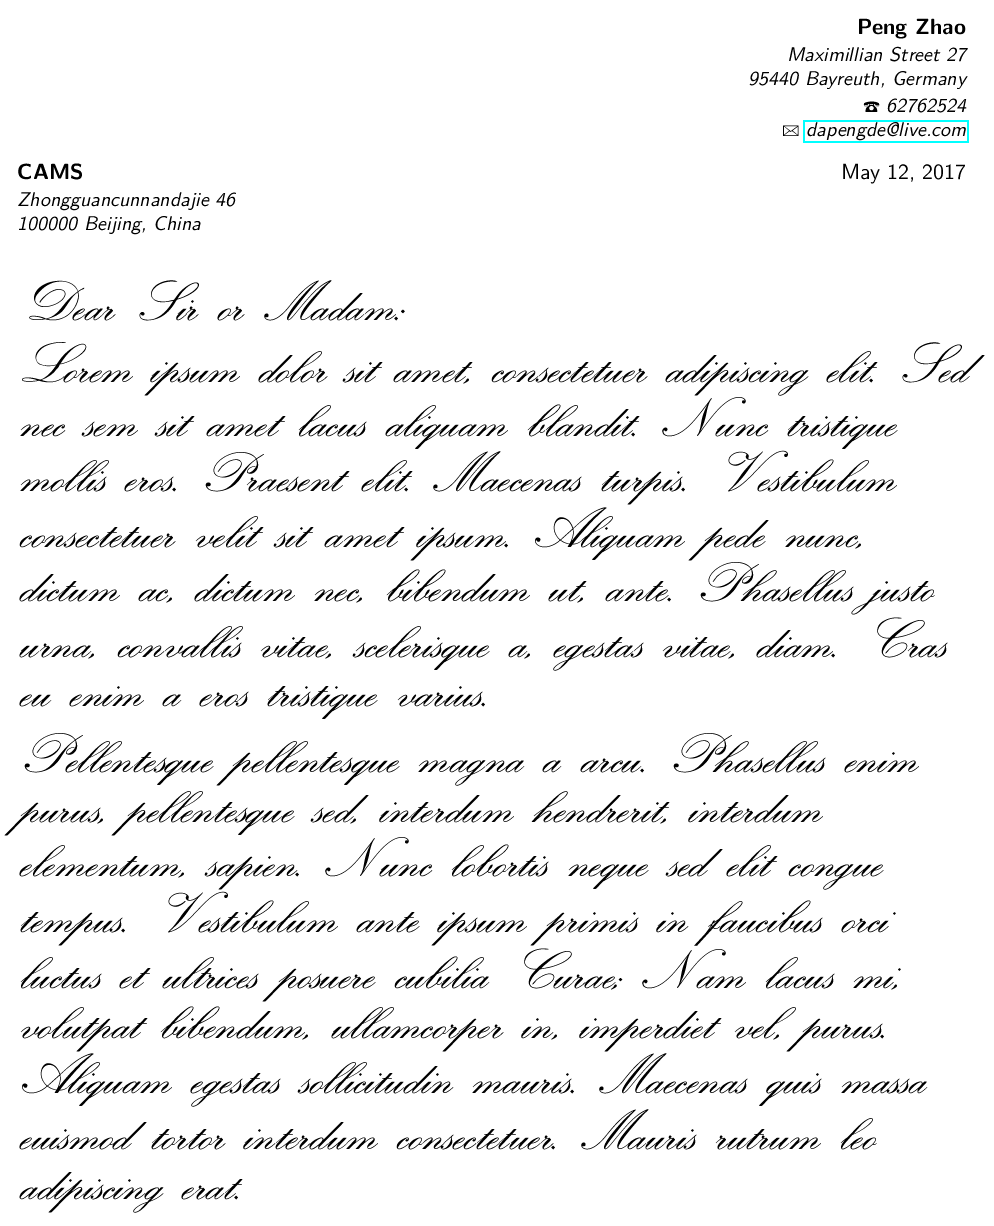 Peng Zhao
Maximillian Street 27
95440 Bayreuth, Germany
☎ 62762524
✉ dapengde@live.com
CAMS
May 12, 2017
Zhongguancunnandajie 46
100000 Beijing, China
Dear Sir or Madam:
Lorem ipsum dolor sit amet, consectetuer adipiscing elit. Sed
nec sem sit amet lacus aliquam blandit. Nunc tristique
mollis eros. Praesent elit. Maecenas turpis. Vestibulum
consectetuer velit sit amet ipsum. Aliquam pede nunc,
dictum ac, dictum nec, bibendum ut, ante. Phasellus justo
urna, convallis vitae, scelerisque a, egestas vitae, diam. Cras
eu enim a eros tristique varius.
Pellentesque pellentesque magna a arcu. Phasellus enim
purus, pellentesque sed, interdum hendrerit, interdum
elementum, sapien. Nunc lobortis neque sed elit congue
tempus. Vestibulum ante ipsum primis in faucibus orci
luctus et ultrices posuere cubilia Curae; Nam lacus mi,
volutpat bibendum, ullamcorper in, imperdiet vel, purus.
Aliquam egestas sollicitudin mauris. Maecenas quis massa
euismod tortor interdum consectetuer. Mauris rutrum leo
adipiscing erat.